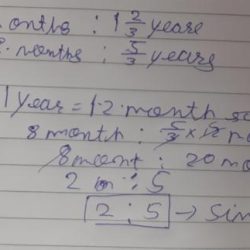 onths : 1 2/3 years
months : 5/3 years
1 year = 12 month so
8 month : 5/3 × 12 m
8 mont : 20 mo
2 : 5
2 : 5 → Sim